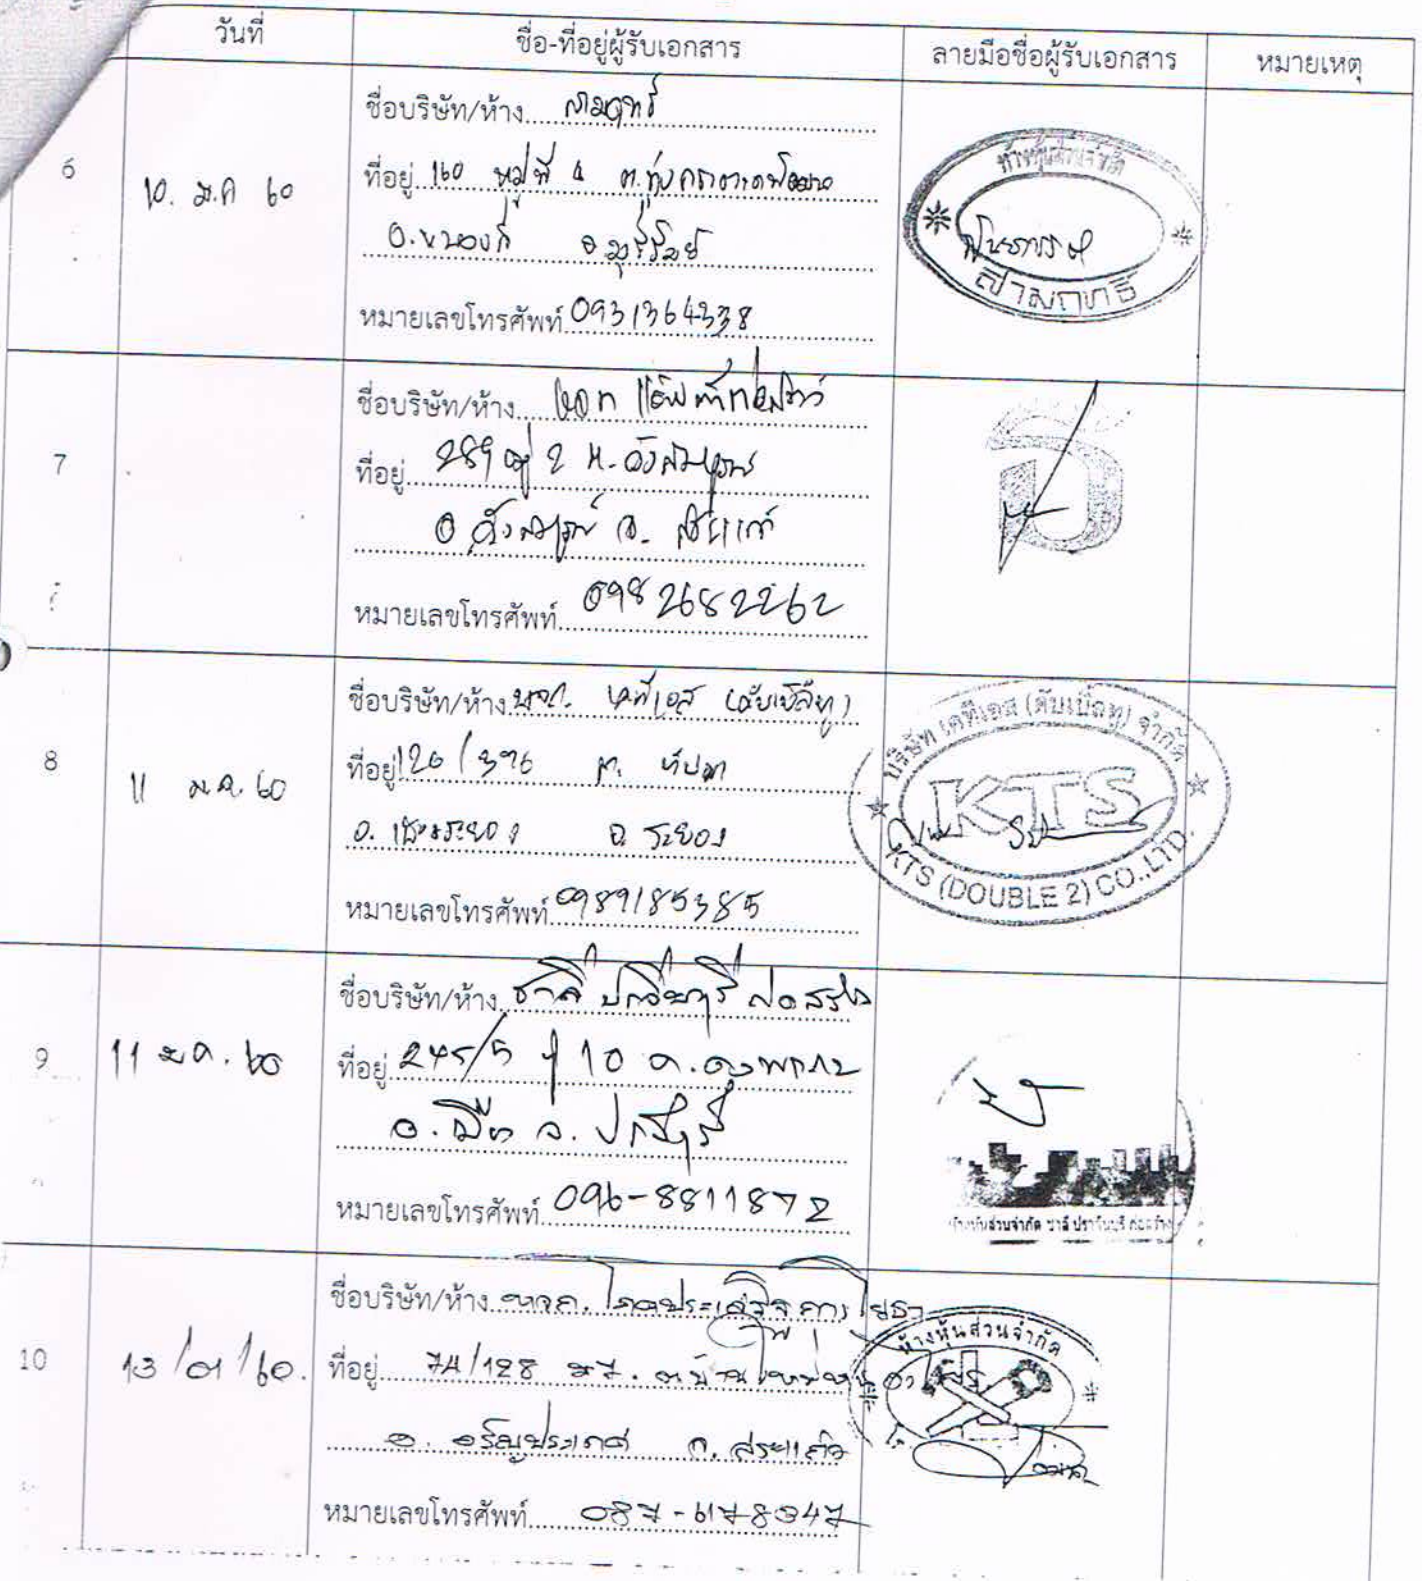 วันที่ ชื่อ-ที่อยู่ผู้รับเอกสาร ลายมือชื่อผู้รับเอกสาร หมายเหตุ
6
10. ม.ค 60
ชื่อบริษัท/ห้าง สามฤทธิ์
ที่อยู่ 160 หมู่ที่ 4 ต.ทุ่งกระตาดพัฒนา
อ.หนองกี่ จ.บุรีรัมย์
หมายเลขโทรศัพท์ 0931364338
ห้างหุ้นส่วนจำกัด
สามฤทธิ์
7
ชื่อบริษัท/ห้าง
ที่อยู่ 289 หมู่ 2 ต.วังสมบูรณ์
อ วังสมบูรณ์ จ. สระแก้ว
หมายเลขโทรศัพท์ 0982682262
8
11 ม.ค. 60
ชื่อบริษัท/ห้าง บจก. เคทีเอส (ดับเบิ้ลทู)
ที่อยู่ 120/396 ต. ทับมา
อ. เมืองระยอง จ ระยอง
หมายเลขโทรศัพท์ 0989185385
บริษัท เคทีเอส (ดับเบิ้ลทู) จำกัด
KTS
KTS (DOUBLE 2) CO.,LTD.
9
11 ม.ค. 60
ชื่อบริษัท/ห้าง ชาลี ปราจีนบุรี ก่อสร้าง
ที่อยู่ 245/5 ม 10 ต.ดงพระราม
อ.เมือง จ. ปราจีนบุรี
หมายเลขโทรศัพท์ 096-8811872
ห้างหุ้นส่วนจำกัด ชาลี ปราจีนบุรี ก่อสร้าง
10
13/01/60.
ชื่อบริษัท/ห้าง หจก. โคกประเสริฐการโยธา
ที่อยู่ 74/128 ม7. ต.บ้านใหม่หนองไทร
อ. อรัญประเทศ จ. สระแก้ว
หมายเลขโทรศัพท์ 087-6178347
ห้างหุ้นส่วนจำกัด